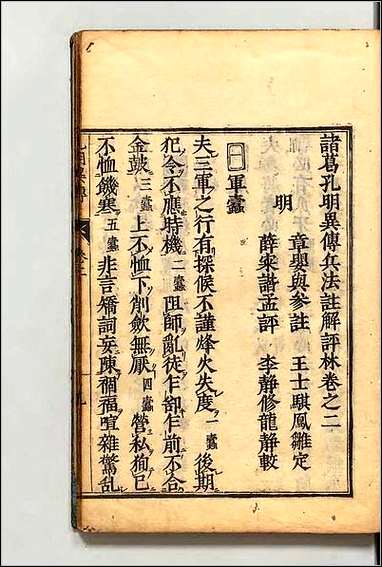 諸葛孔明異傳兵法註解評林卷之二
明
章嬰與參註 王士騏鳳雛定
薛寀諧孟評 李靜修龍靜較
軍蠹
夫三軍之行有探候不謹烽火失度一蠹後期
犯令不應時機二蠹阻師亂徒乍卻乍前不合
金鼓三蠹上不恤下削斂無厭四蠹營私狥已
不恤饑寒五蠹非言矯詞妄陳禍福喧雜驚亂